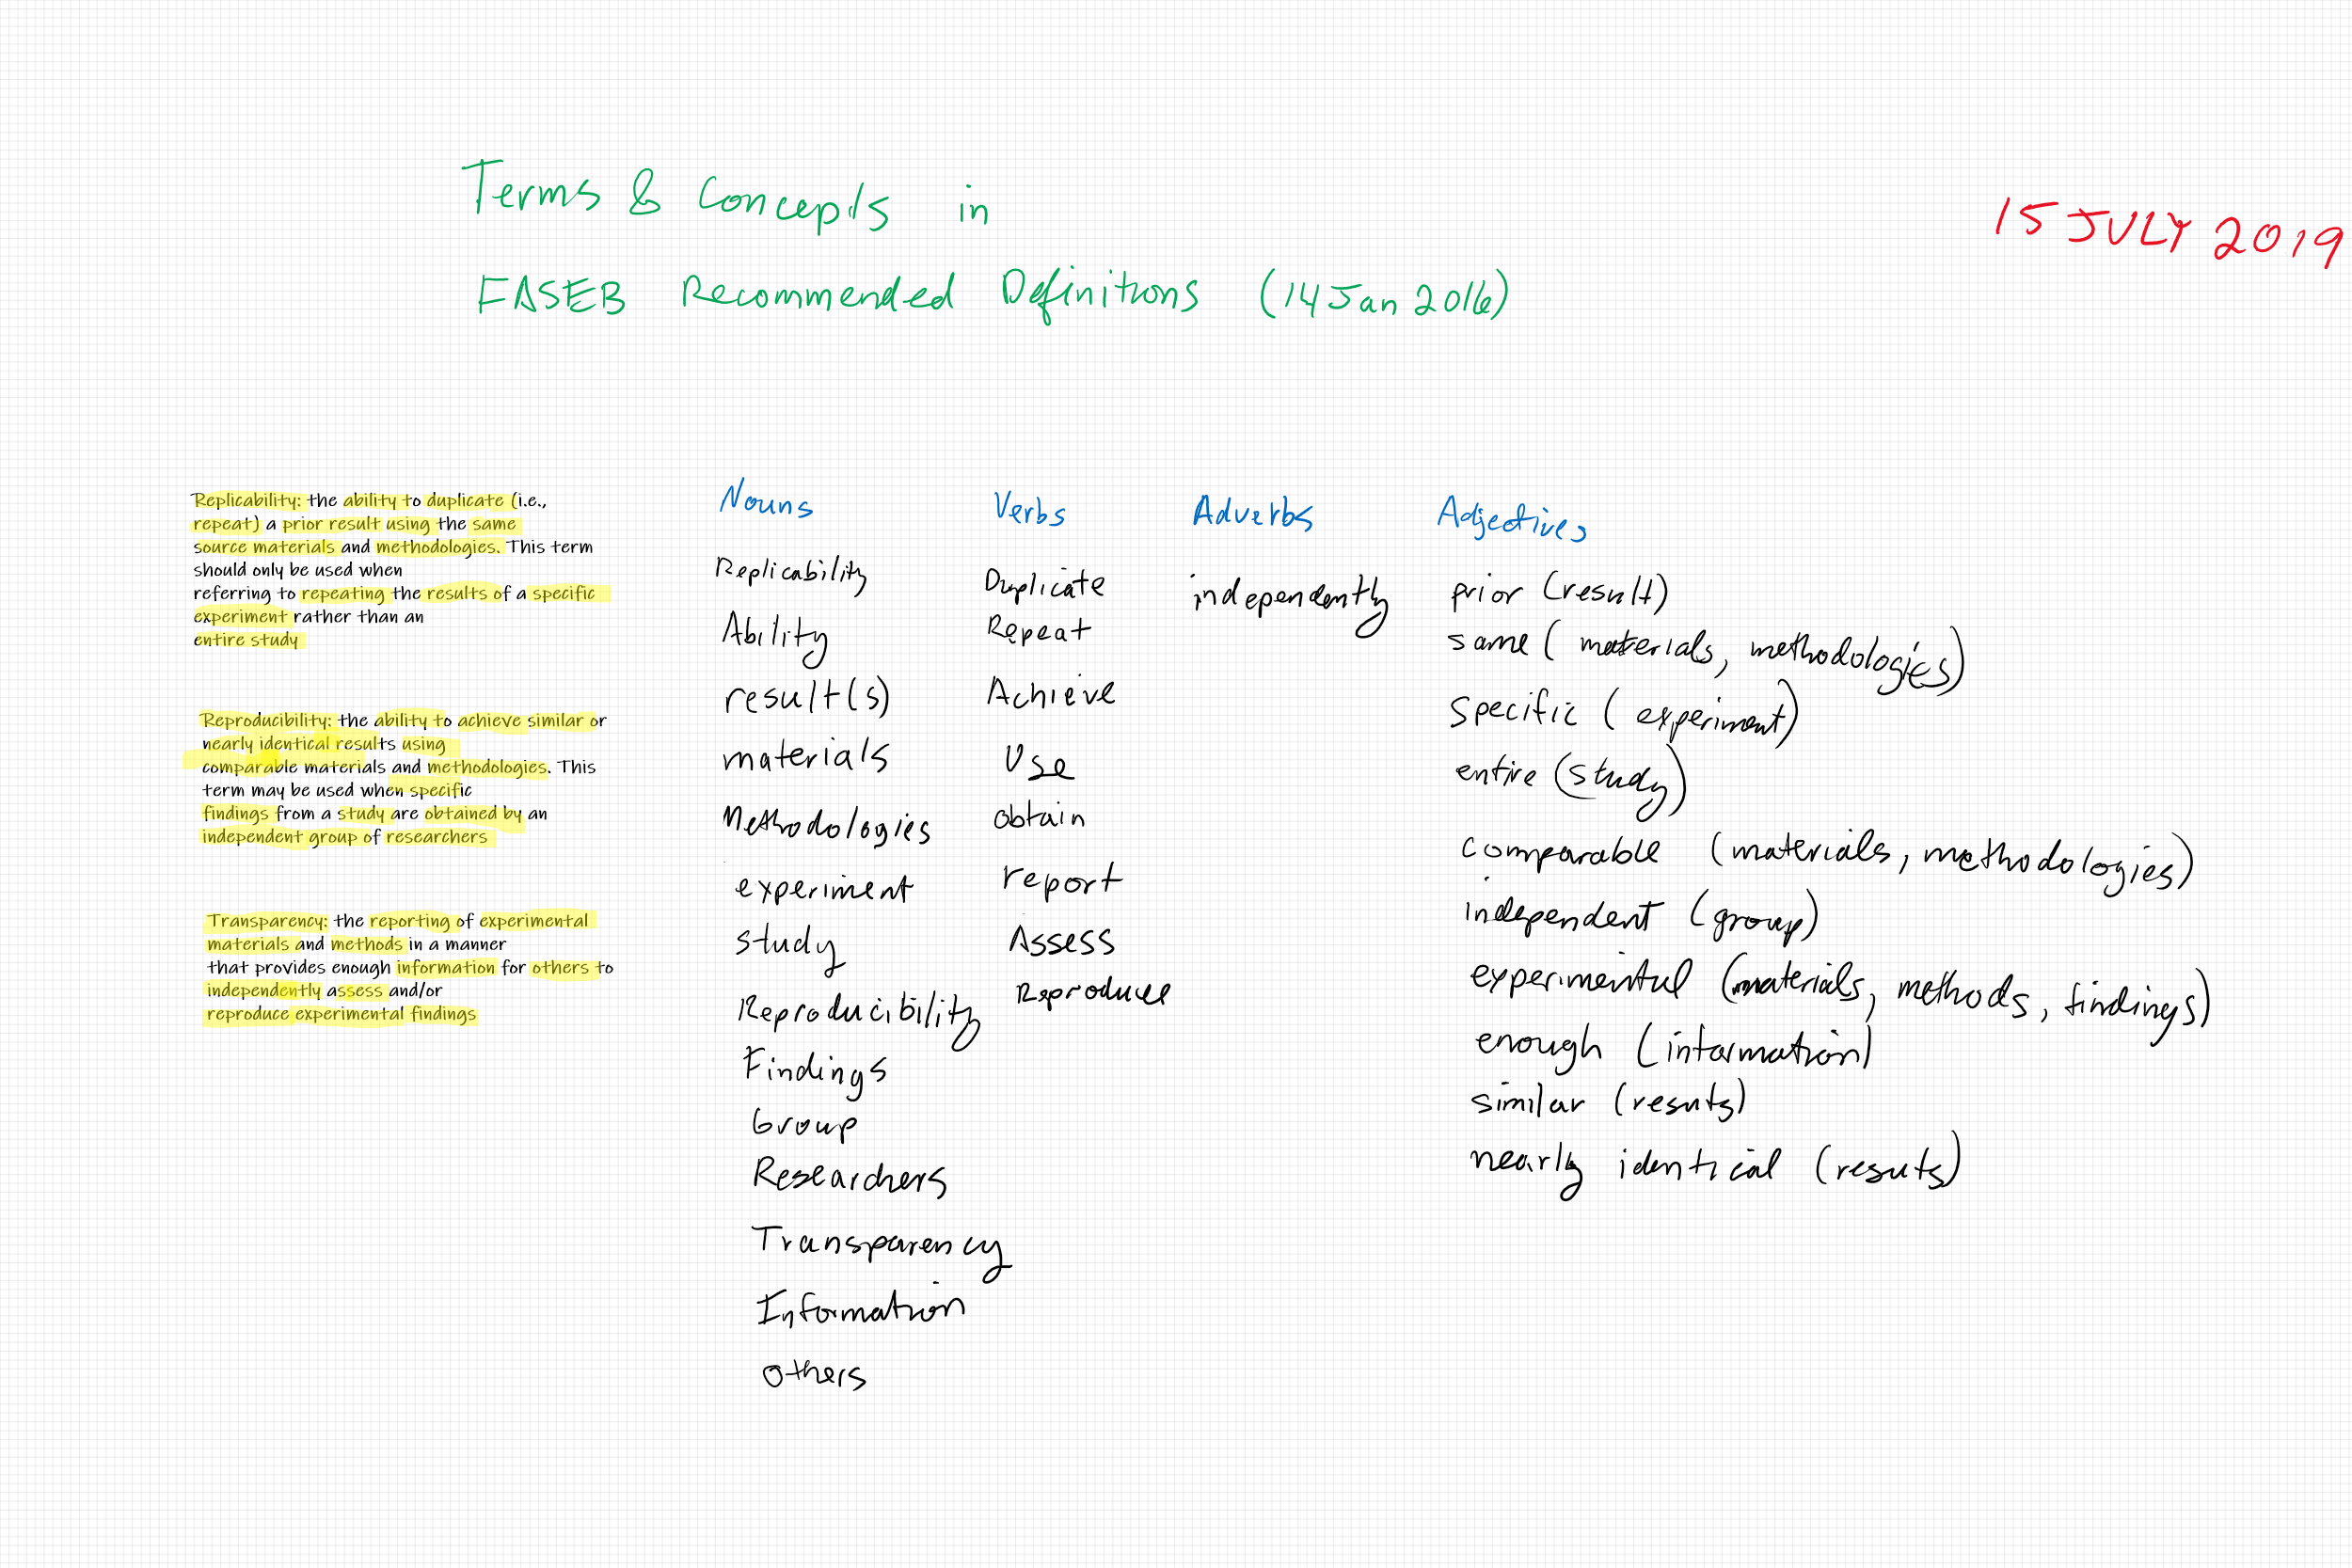 Terms & Concepts in
15 JULY 2019
FASEB Recommended Definitions (14 Jan 2016)
Replicability: the ability to duplicate (i.e.,
repeat) a prior result using the same
source materials and methodologies. This term
should only be used when
referring to repeating the results of a specific
experiment rather than an
entire study
Reproducibility: the ability to achieve similar or
nearly identical results using
comparable materials and methodologies. This
term may be used when specific
findings from a study are obtained by an
independent group of researchers
Transparency: the reporting of experimental
materials and methods in a manner
that provides enough information for others to
independently assess and/or
reproduce experimental findings
Nouns
Replicability
Ability
result(s)
materials
Methodologies
experiment
study
Reproducibility
Findings
Group
Researchers
Transparency
Information
others
Verbs
Duplicate
Repeat
Achieve
Use
obtain
report
Assess
Reproduce
Adverbs
independently
Adjectives
prior (result)
same (materials, methodologies)
specific (experiment)
entire (study)
comparable (materials, methodologies)
independent (group)
experimental (materials, methods, findings)
enough (information)
similar (resuts)
nearly identical (resuts)